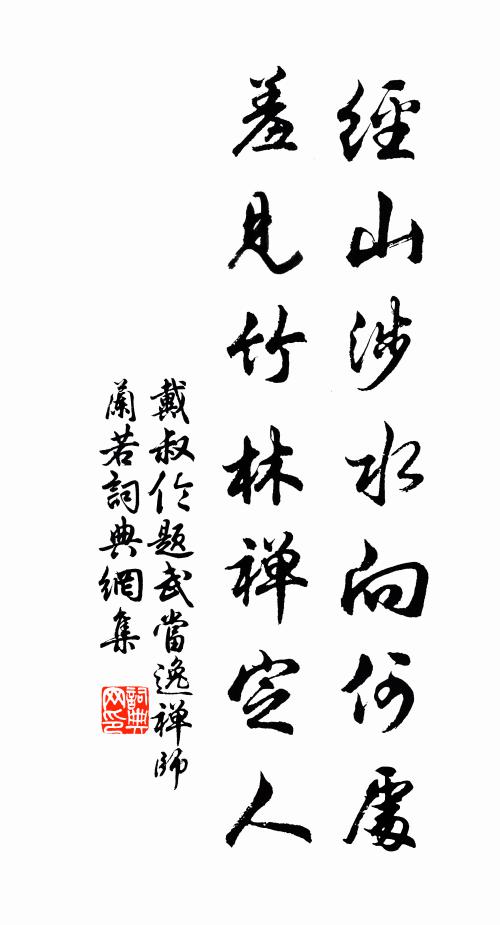 經山涉水向何處
羞見竹林禅定人
戴叔伦題武當逸禅師
蘭若詞典網集
詞典网印